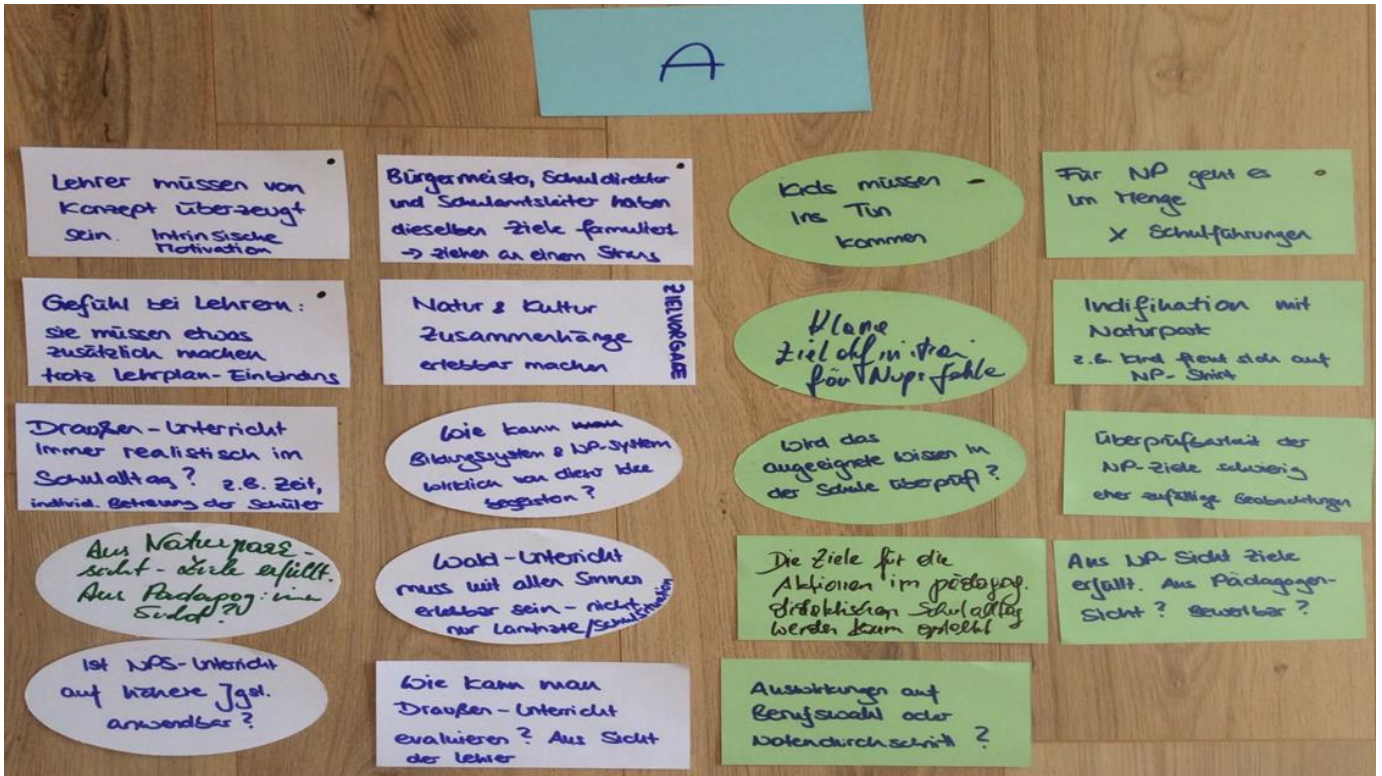 A
Lehrer müssen von
Konzept überzeugt
sein. Intrinsische
Motivation
Gefühl bei Lehrern:
sie müssen etwas
zusätzlich machen
trotz Lehrplan-Einbindung
Draußen-Unterricht
immer realistisch im
Schulalltag? z.B. Zeit,
individ. Betreuung der Schüler
Aus Naturpark-
sicht - Ziele erfüllt.
Aus Pädagog:innen
Sicht?
Ist NPS-Unterricht
auf höhere Jgst.
anwendbar?
Bürgermeister, Schuldirektor
und Schulamtsleiter haben
dieselben Ziele formuliert
→ ziehen an einem Strang
Natur & Kultur
Zusammenhänge
erlebbar machen
ZIELVORGABE
Wie kann man
Bildungssystem & NP-System
wirklich von dieser Idee
begeistern?
Wald-Unterricht
muss mit allen Sinnen
erlebbar sein - nicht
nur Laminate/Schulsituation
Wie kann man
Draußen-Unterricht
evaluieren? Aus Sicht
der Lehrer
Kids müssen
ins Tun
kommen
Klare
Zieldefinition
für
Wird das
angeeignete Wissen in
der Schule überprüft?
Die Ziele für die
Aktionen im pädagog.
didaktischen Schulalltag
werden kaum
Auswirkungen auf
Berufswahl oder
Notendurchschnitt?
Für NP geht es
um Menge
X Schulführungen
Indifikation mit
Naturpark
z.B. Kind freut sich auf
NP-Shirt
Überprüfbarkeit der
NP-Ziele schwierig
eher zufällige Beobachtungen
Aus NP-Sicht Ziele
erfüllt. Aus Pädagogen-
sicht? bewertbar?